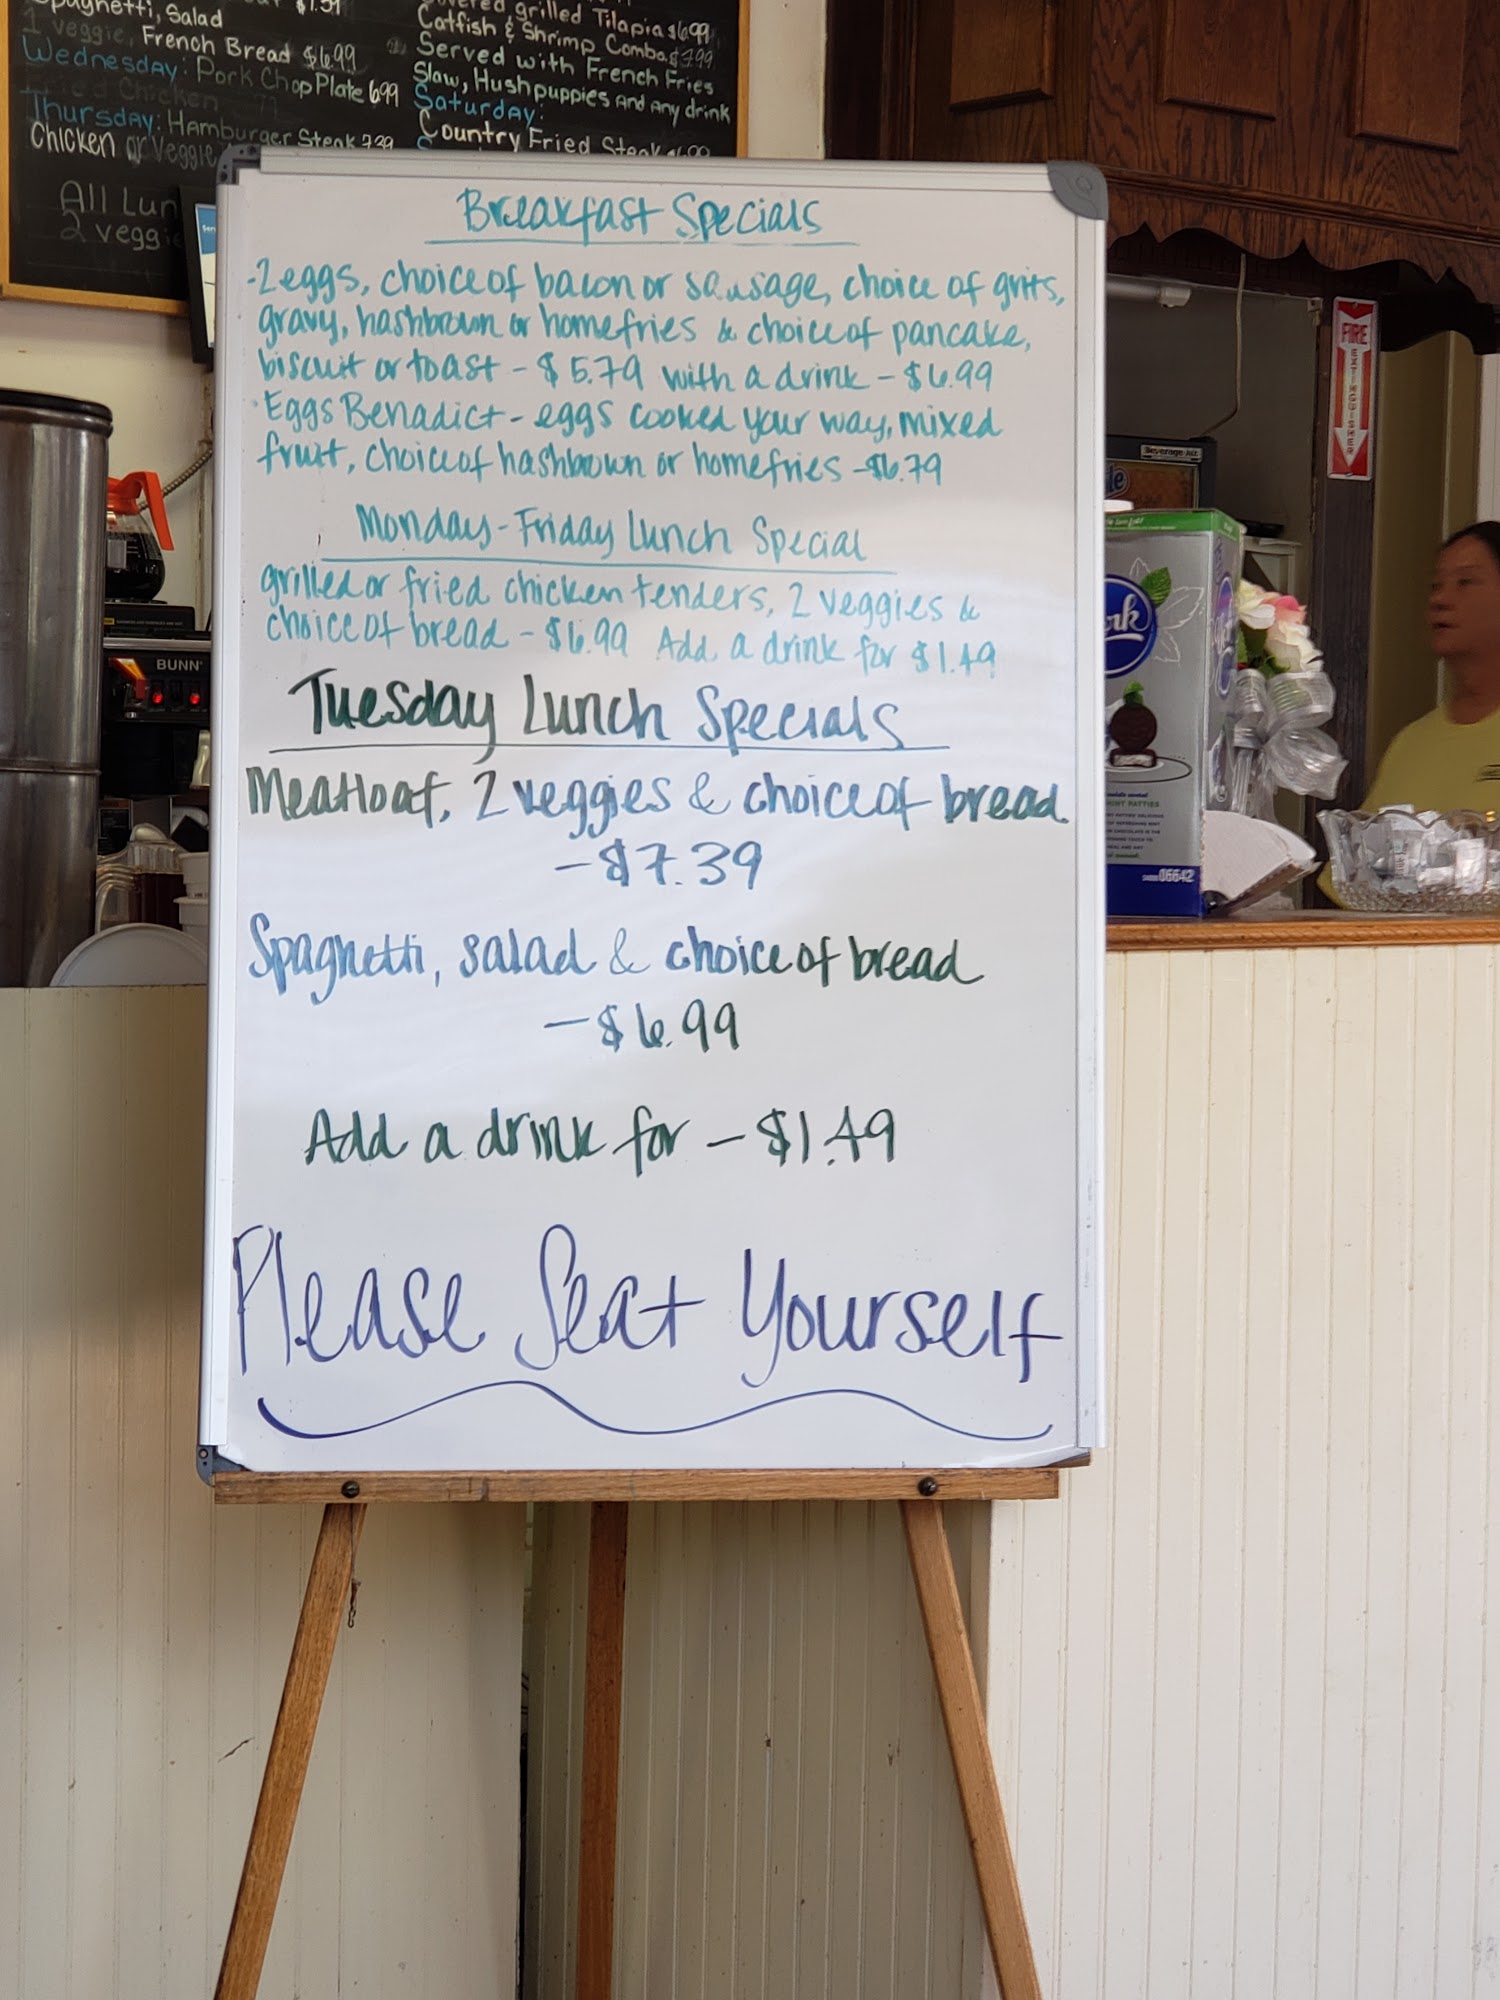 $1.59
Spaghetti, Salad
1 veggie, French Bread $6.99
Wednesday: Pork Chop Plate 6.99
Fried Chicken
Thursday: Hamburger Steak 7.29
Chicken or Veggie
All Lun
2 veggie
grilled Tilapia $6.99
Catfish & Shrimp Combo $7.99
Served with French Fries
Slaw, Hushpuppies And Any drink
Saturday:
Country Fried Steak
Breakfast Specials
-2 eggs, choice of bacon or sausage, choice of grits,
gravy, hashbrown or homefries & choice of pancake,
biscuit or toast - $5.79 with a drink - $6.99
·Eggs Benadict - eggs cooked your way, mixed
fruit, choice of hashbrown or homefries - $6.79
Monday-Friday Lunch Special
grilled or fried chicken tenders, 2 veggies &
choice of bread - $6.99 Add a drink for $1.49
Tuesday Lunch Specials
Meatloaf, 2 veggies & choice of bread
- $7.39
Spaghetti, salad & choice of bread
- $6.99
Add a drink for - $1.49
Please Seat Yourself
BUNN
FIRE
EXTINGUISHER
Beverage-Air
rk
MINT PATTIES
06642